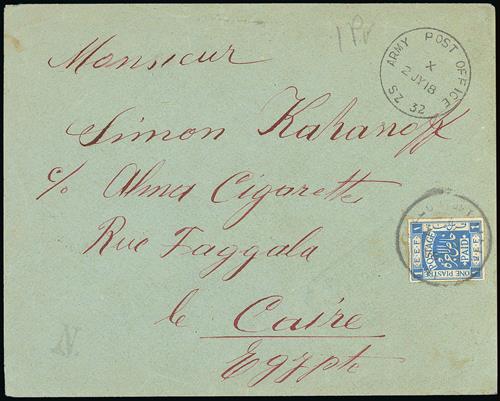 1 Pr
ARMY POST OFFICE
X
2 JY 18
SZ 32
Monsieur
Simon Kahanoff
c/o Alma Cigarettes
Rue Faggala
le Caire
Egypte
POSTAGE PAID
E.E.F.
ONE PIASTRE